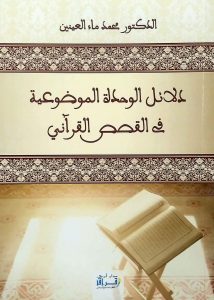 الدكتور محمد ماء العينين
دلائل الوحدة الموضوعية
في القصص القرآني